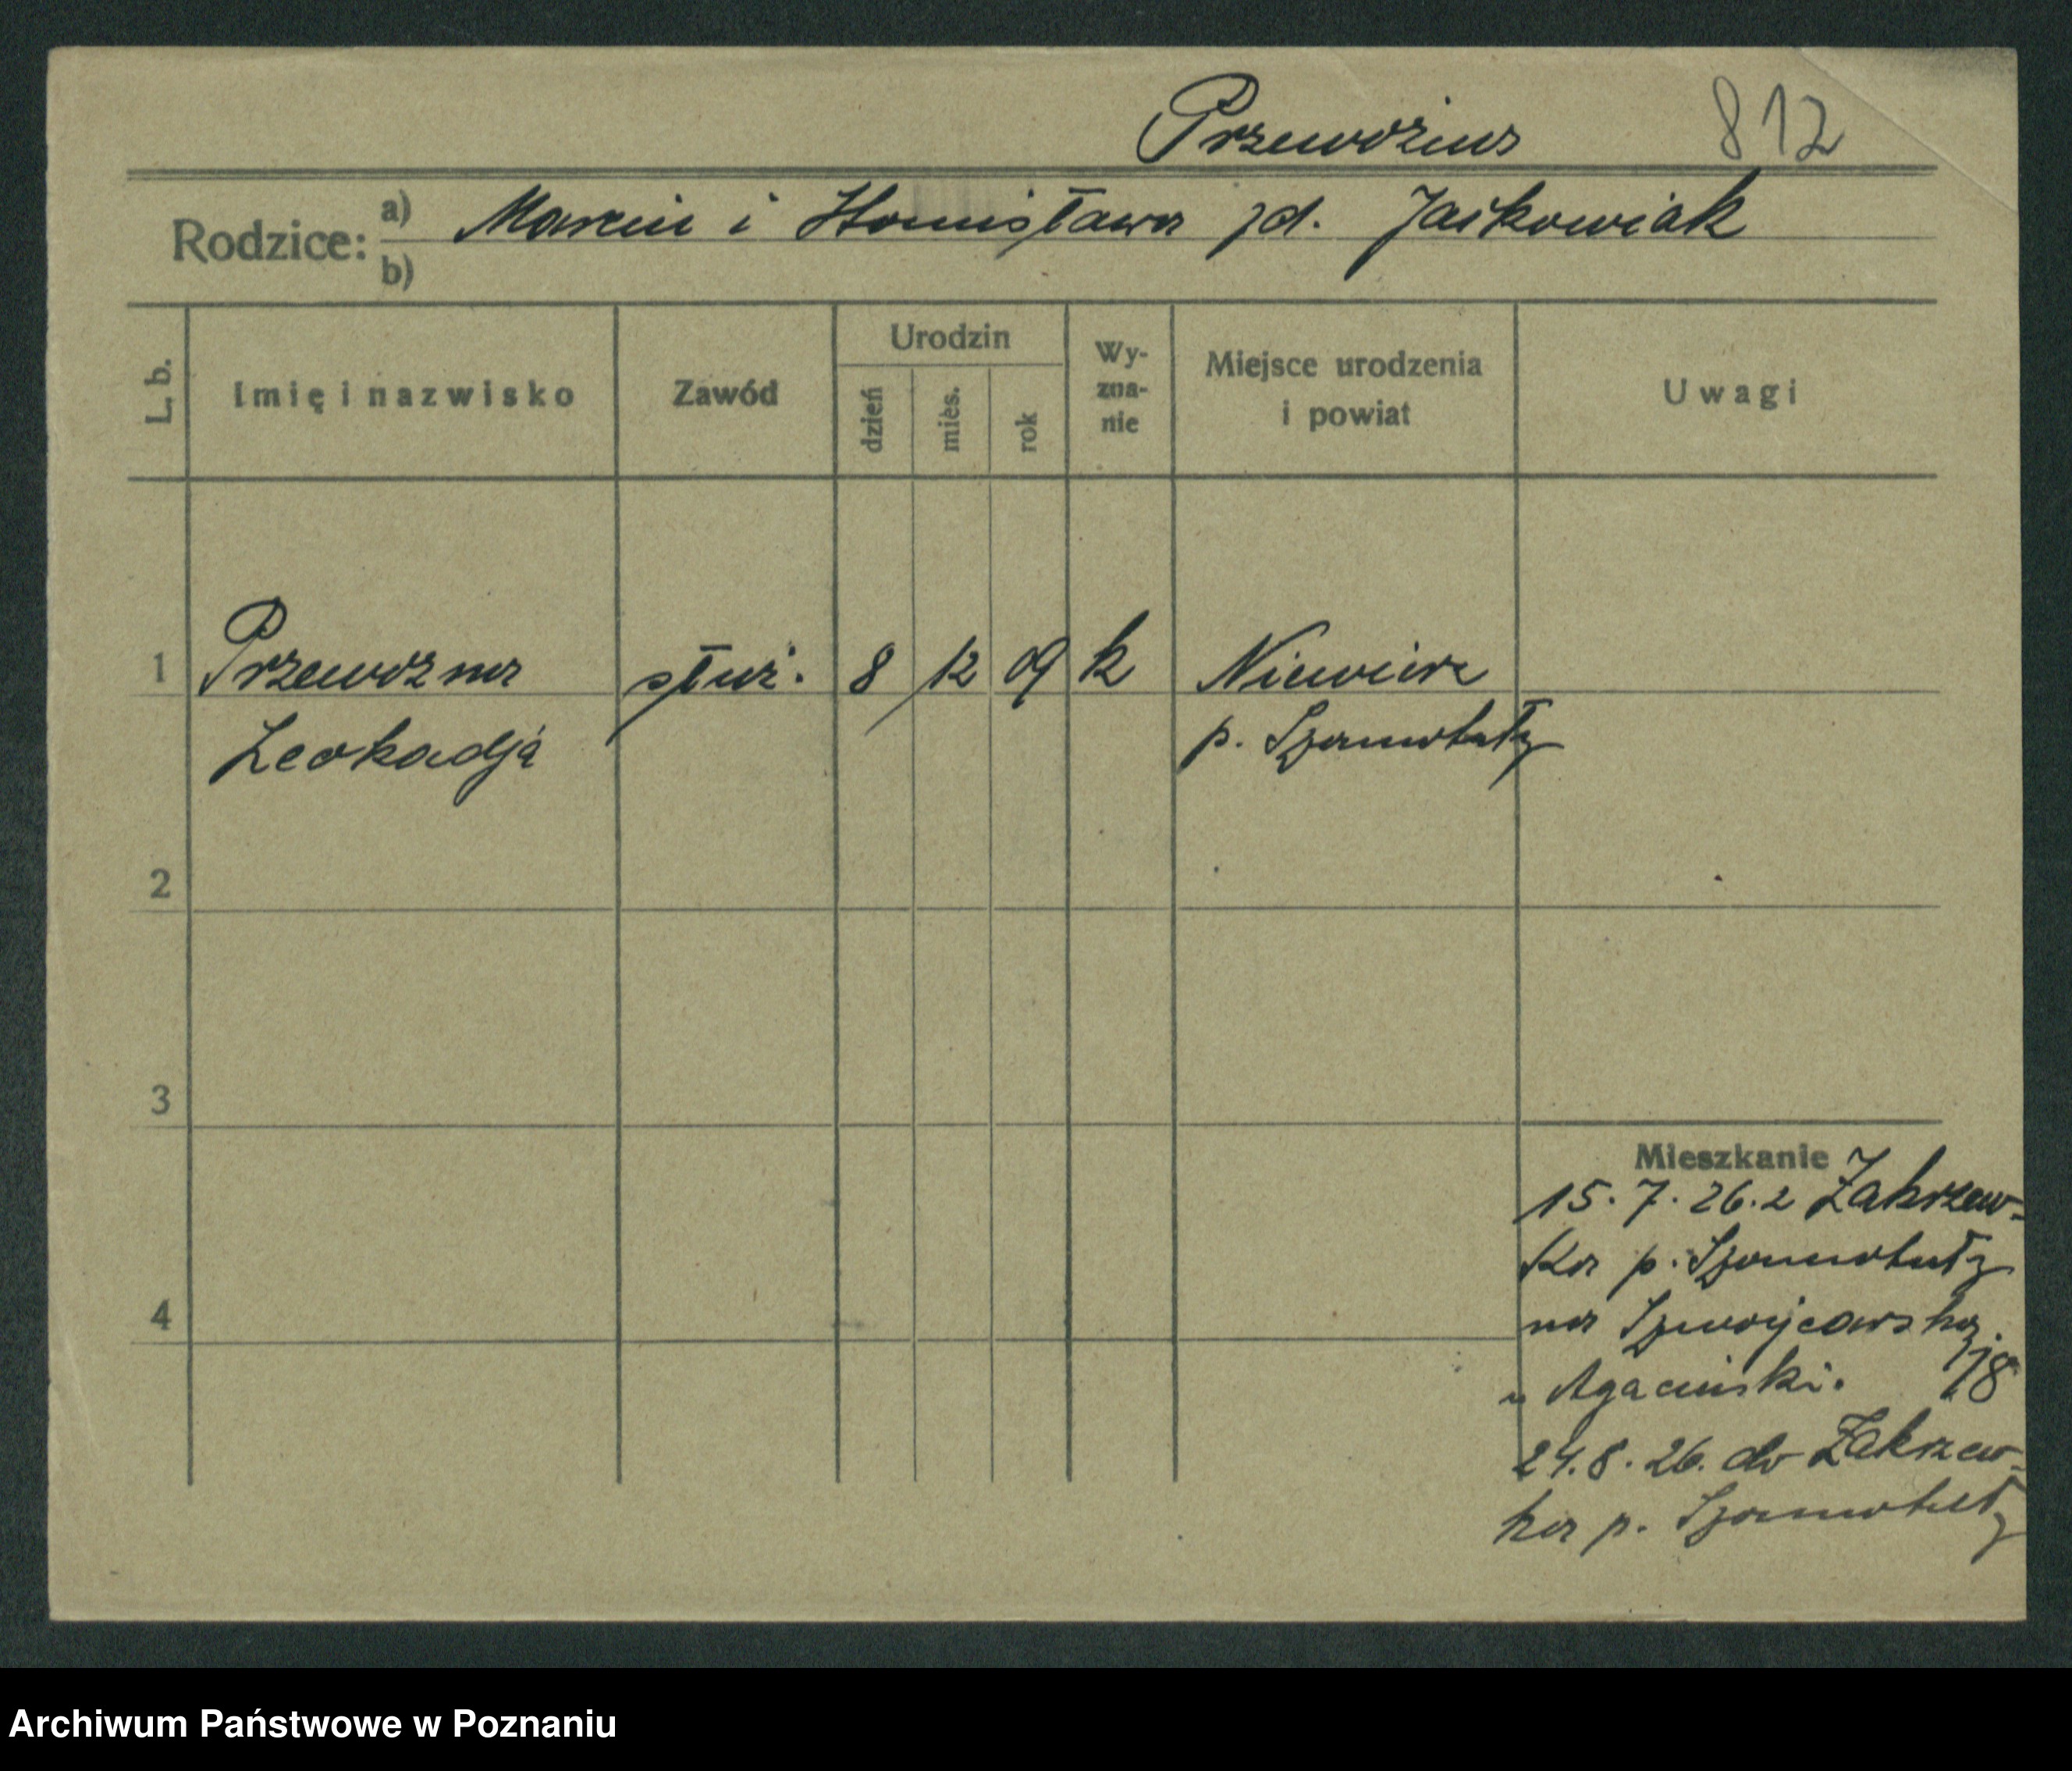 Przewoźna 812
Rodzice: a) Marcin i Stanisława zd. Jaśkowiak
b)
L. b. Imię i nazwisko Zawód Urodzin dzień mies. rok Wyznanie Miejsce urodzenia i powiat Uwagi
1 Przewoźna służ. 8 12 09 k Niewierz
Leokadja p. Szamotuły
2
3
Mieszkanie
15. 7. 26. z Zakrzew-
ka p. Szamotuły
4 na Szwajcarską
u Agaciński. 18
24. 8. 26. do Zakrzew-
ka p. Szamotuły
Archiwum Państwowe w Poznaniu